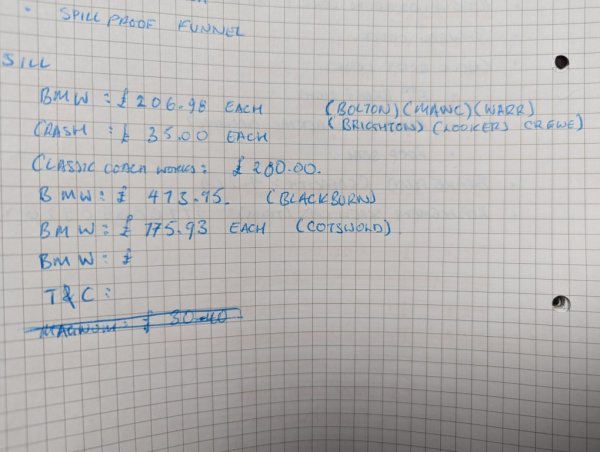 • SPILL PROOF FUNNEL
SILL
BMW : £ 206.98 EACH (BOLTON) (MANC) (WARR)
(BRIGHTON) (LOOKERS CREWE)
CRASH : £ 35.00 EACH
CLASSIC COACH WORKS : £ 280.00.
BMW : £ 473.95. (BLACKBURN)
BMW : £ 175.93 EACH (COTSWOLD)
BMW : £
T&C :
MAGNUM : £ 30.40